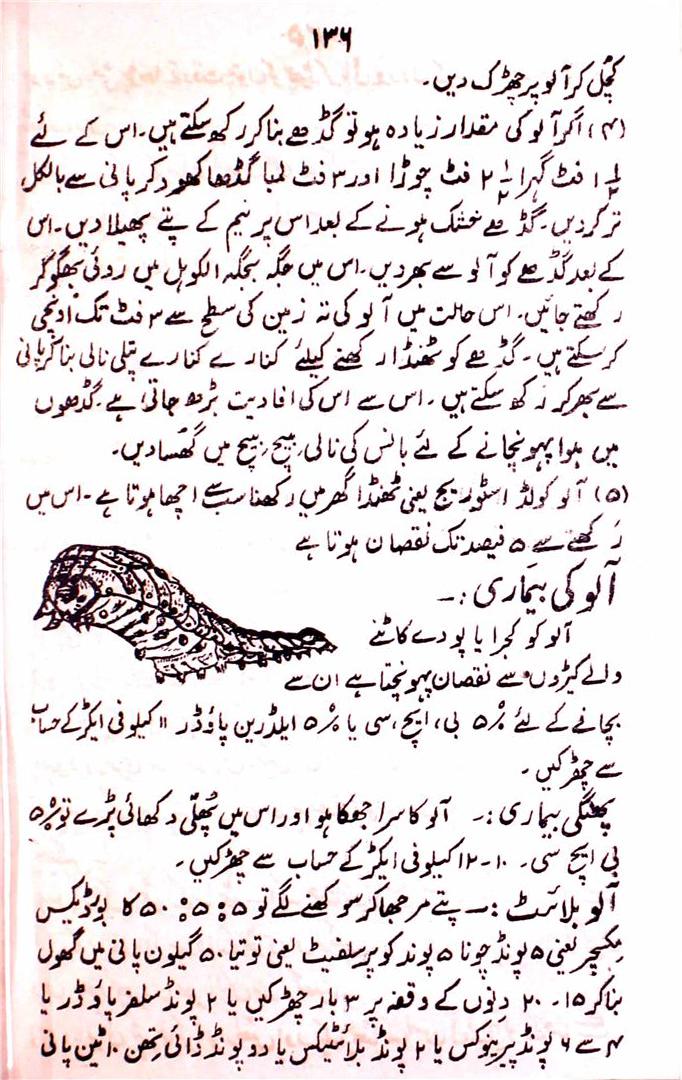 ۱۳۶
کچل کر آلو پر چھڑک دیں۔
(۴) اگر آلو کی مقدار زیادہ ہو تو گڈھے بنا کر رکھ سکتے ہیں۔ اس کے لئے
۱ ۱/۲ فٹ گہرا ۲ ۱/۲ فٹ چوڑا اور ۳ فٹ لمبا گڈھا کھود کر پانی سے بالکل
تر کر دیں۔ گڈھے خشک ہونے کے بعد اس پر نیم کے پتے پھیلا دیں۔ اس
کے بعد گڈھے کو آلو سے بھر دیں۔ اس میں جگہ جگہ الکوہل میں روئی بھگو کر
رکھتے جائیں۔ اس حالت میں آلو کی تہ زمین کی سطح سے ۳ فٹ تک اونچی
کر سکتے ہیں۔ گڈھے کو ٹھنڈا رکھنے کیلئے کنارے کنارے پتلی نالی بنا کر پانی
سے بھر کر رکھ سکتے ہیں۔ اس سے اس کی افادیت بڑھ جاتی ہے۔ گڈھوں
میں ہوا پہونچانے کے لئے بانس کی نالی بیچ بیچ میں گھسا دیں۔
(۵) آلو کولڈ اسٹوریج یعنی ٹھنڈا گھر میں رکھنا سب سے اچھا ہوتا ہے۔ اس میں
رکھنے سے ۵ فیصد تک نقصان ہوتا ہے
آلو کی بیماری :۔
آلو کو کجرا یا پودے کاٹنے
والے کیڑوں سے نقصان پہونچتا ہے ان سے
بچانے کے لئے ۵% بی، ایچ، سی یا ۵% ایلڈرین پاؤڈر ۱۱ کیلو فی ایکڑ کے حساب
سے چھڑکیں۔
پھنگی بیماری :۔ آلو کا سرا جھکا ہو اور اس میں پھلی دکھائی پڑے تو ۵%
بی ایچ سی۔ ۱۰۔۱۲ کیلو فی ایکڑ کے حساب سے چھڑکیں۔
آلو بلائٹ :۔ پتے مرجھا کر سوکھنے لگے تو ۵ : ۵ : ۵۰ کا بورڈیکس
مکسچر یعنی ۵ پونڈ چونا ۵ پونڈ کوپر سلفیٹ یعنی توتیا ۵۰ گیلون پانی میں گھول
بنا کر ۱۵۔ ۲۰ دنوں کے وقفہ پر ۳ بار چھڑکیں یا ۲ پونڈ سلفر پاؤڈر یا
۴ سے ۶ پونڈ پرینوکس یا ۲ پونڈ بلائٹیکس یا دو پونڈ ڈائی تھن ۱۰ ٹین پانی